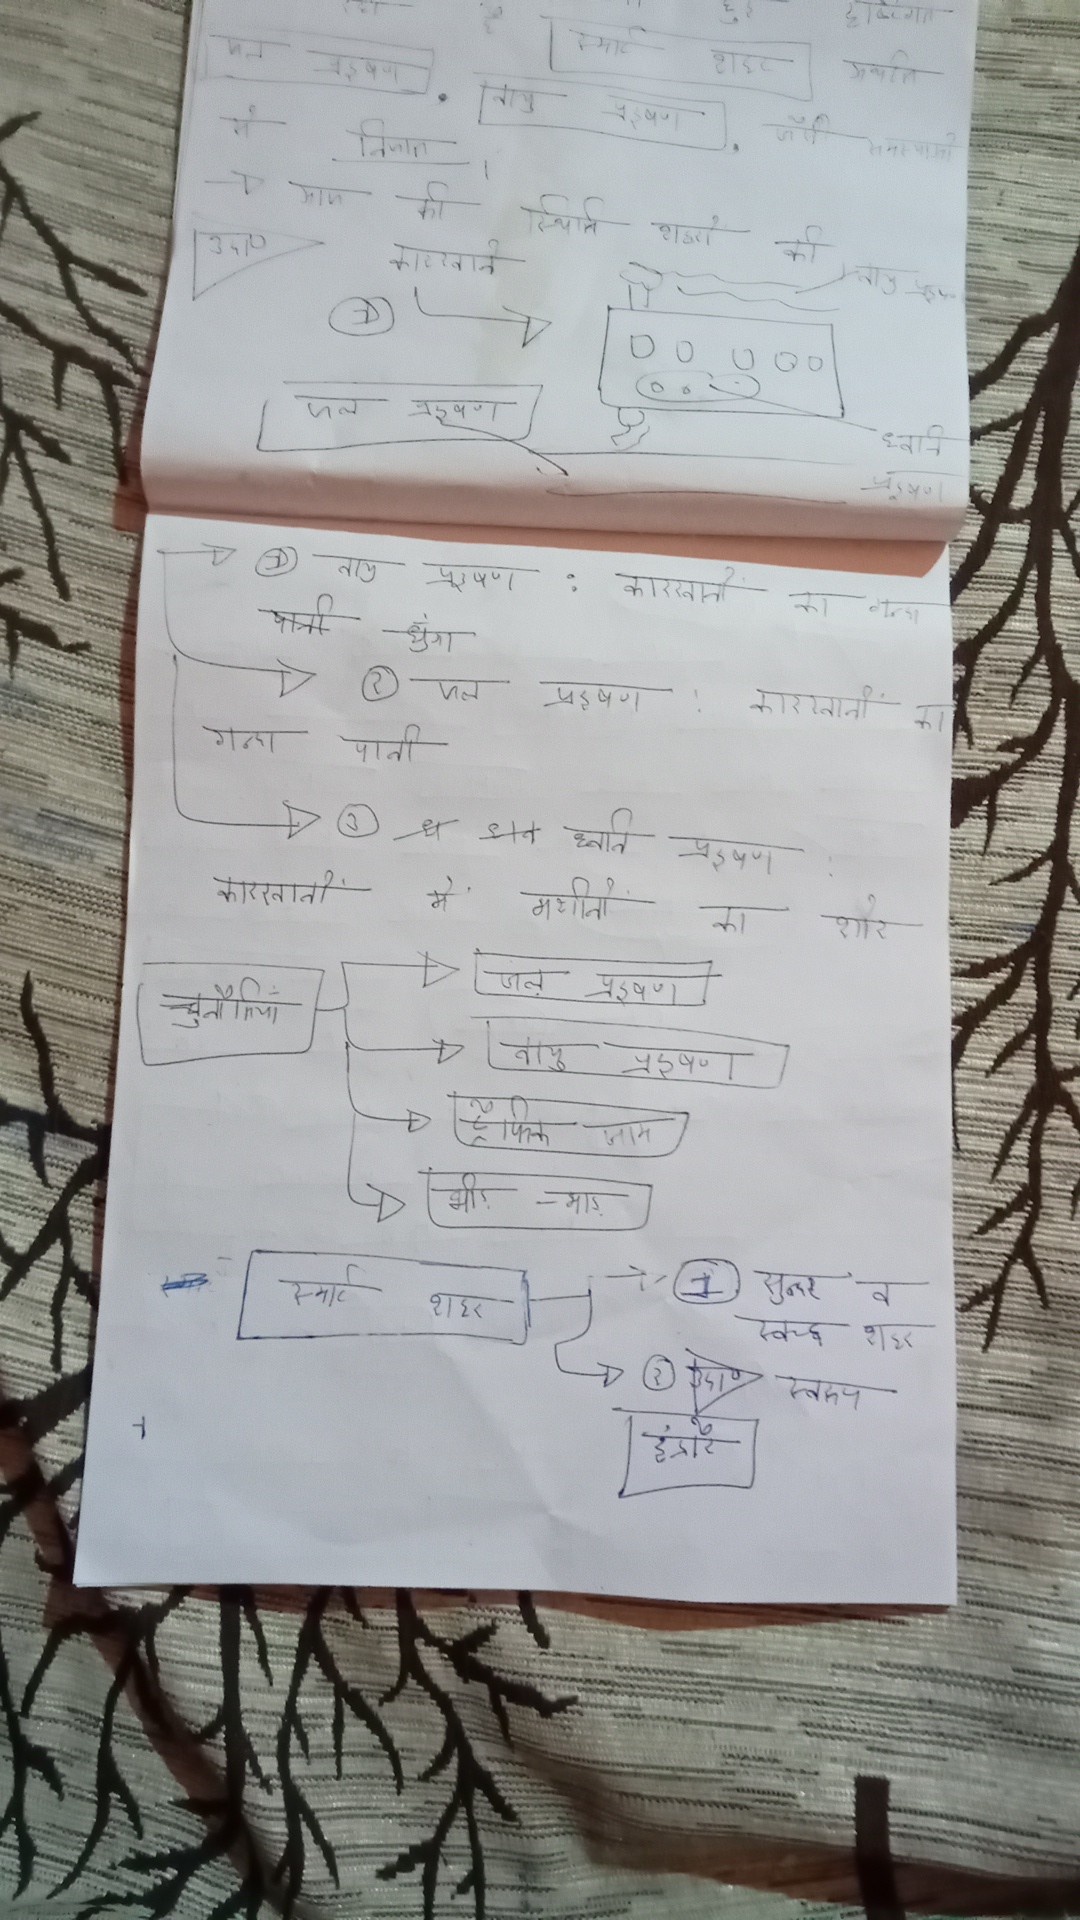 है हुए
जल प्रदूषण स्मार्ट शहर
वायु प्रदूषण . जैसी
में निजात ।
→ आज की स्थिति शहरों की
उदा० कारखाने वायु प्रदूषण
①
जल प्रदूषण
ध्वनि
प्रदूषण
→ ① वायु प्रदूषण : कारखानों का गन्दा
पानी धुंआ
→ ② जल प्रदूषण : कारखानों का
गन्दा पानी
→ ③ ध ध्वन ध्वनि प्रदूषण :
कारखानों में मशीनों का शोर
चुनौतियां → जल प्रदूषण
→ वायु प्रदूषण
→ ट्रैफिक जाम
→ भीड़ - भाड़
स्मार्ट शहर → ① सुन्दर व
स्वच्छ शहर
→ ② उदा० स्वरूप
इंदौर